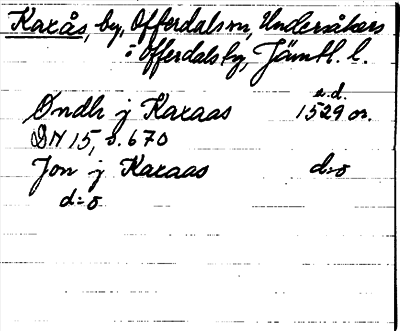 Kaxås, by, Offerdals sn, Undersåkers
i Offerdals by, Jämtl. l.
Øndh j Kaxaas
a.d.
1529 or.
DN 15, s. 670
Jon j Kaxaas d:o
d:o